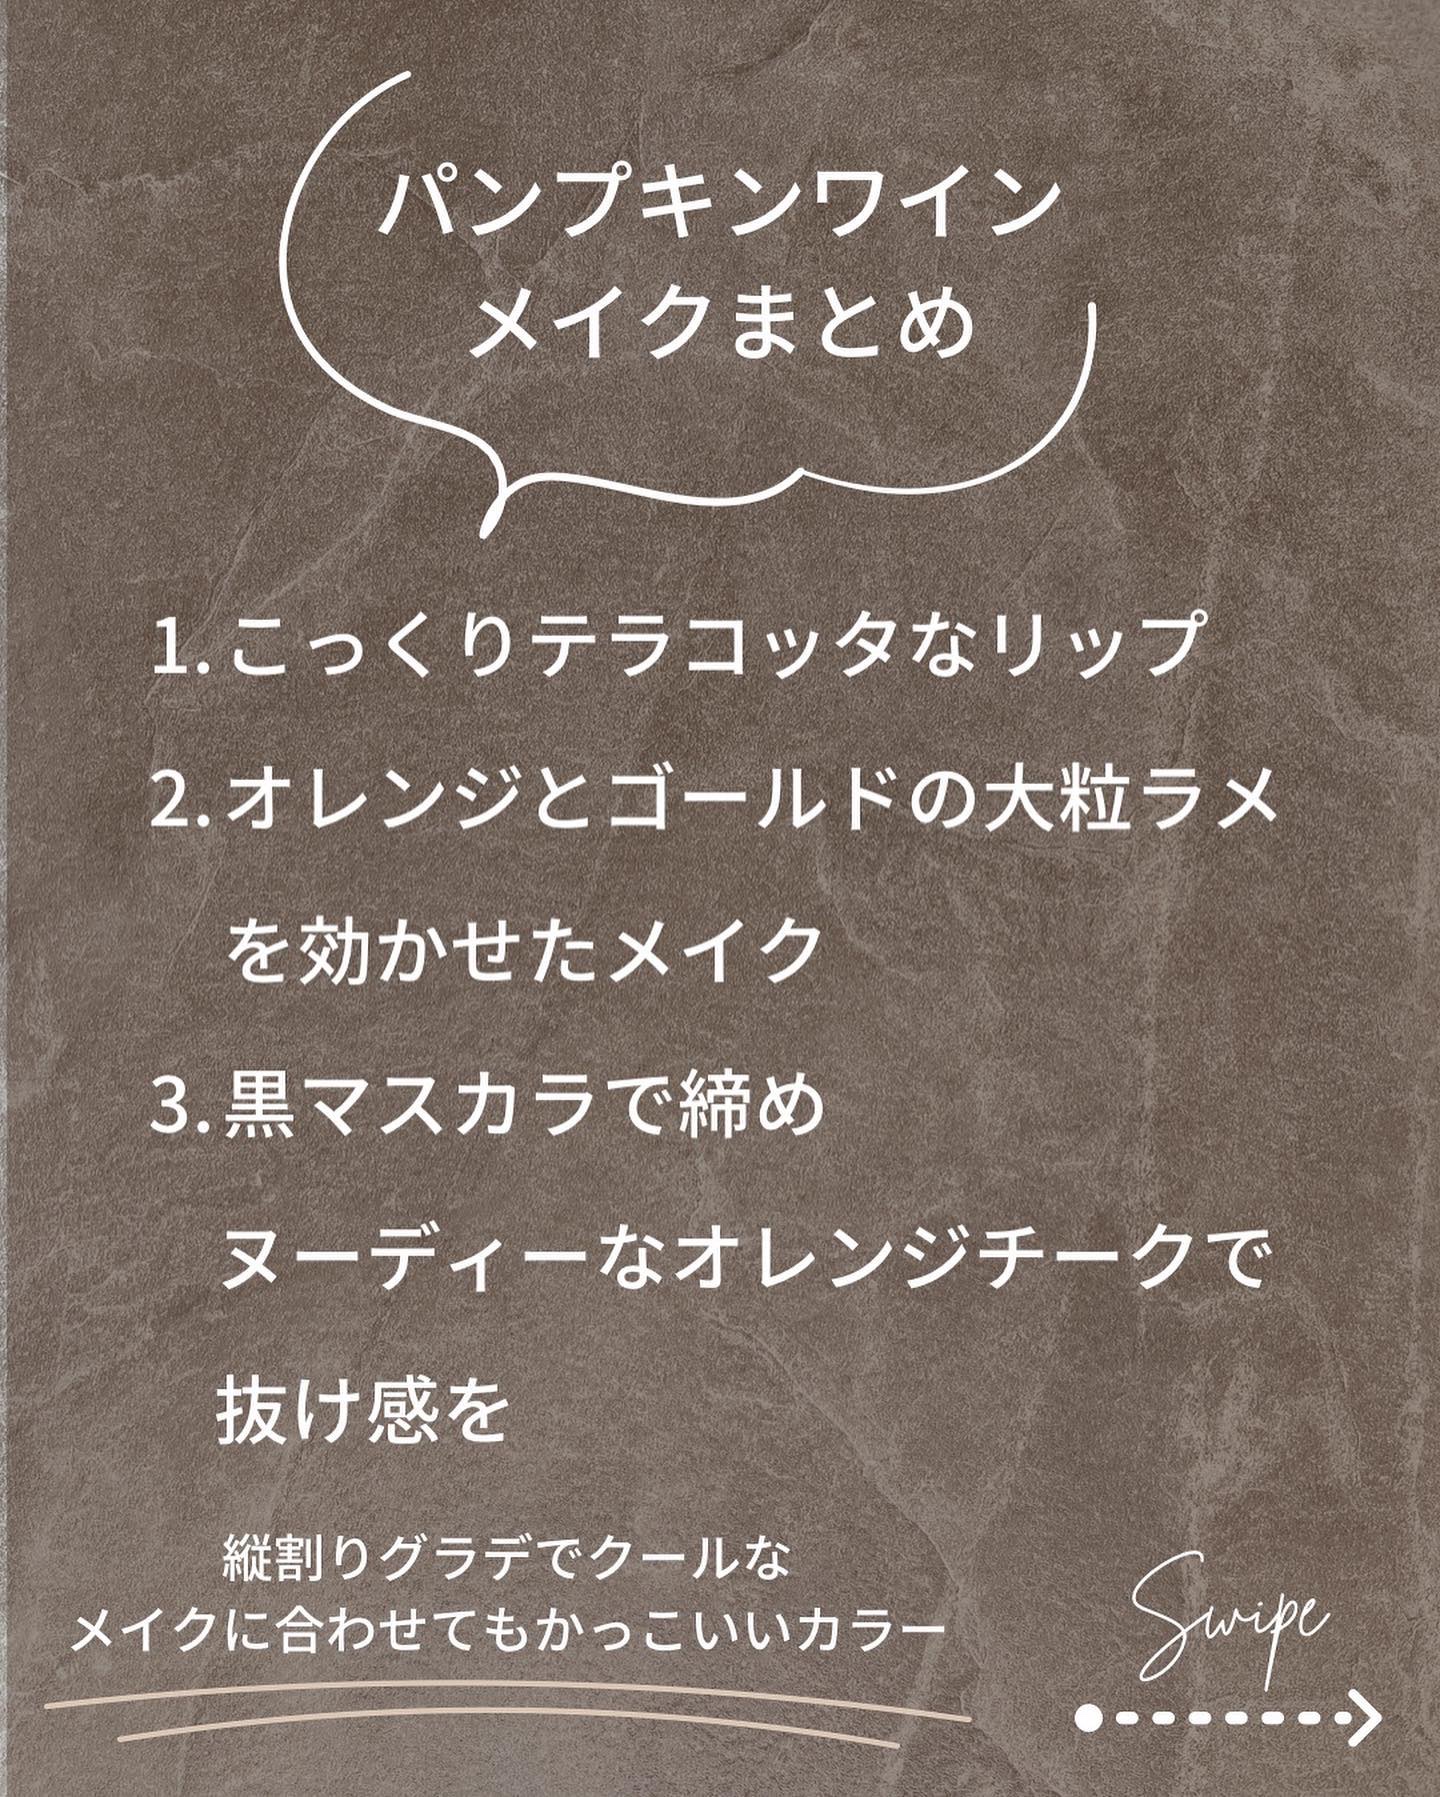 パンプキンワイン
メイクまとめ
1.こっくりテラコッタなリップ
2.オレンジとゴールドの大粒ラメ
を効かせたメイク
3.黒マスカラで締め
ヌーディーなオレンジチークで
抜け感を
縦割りグラデでクールな
メイクに合わせてもかっこいいカラー
Swipe